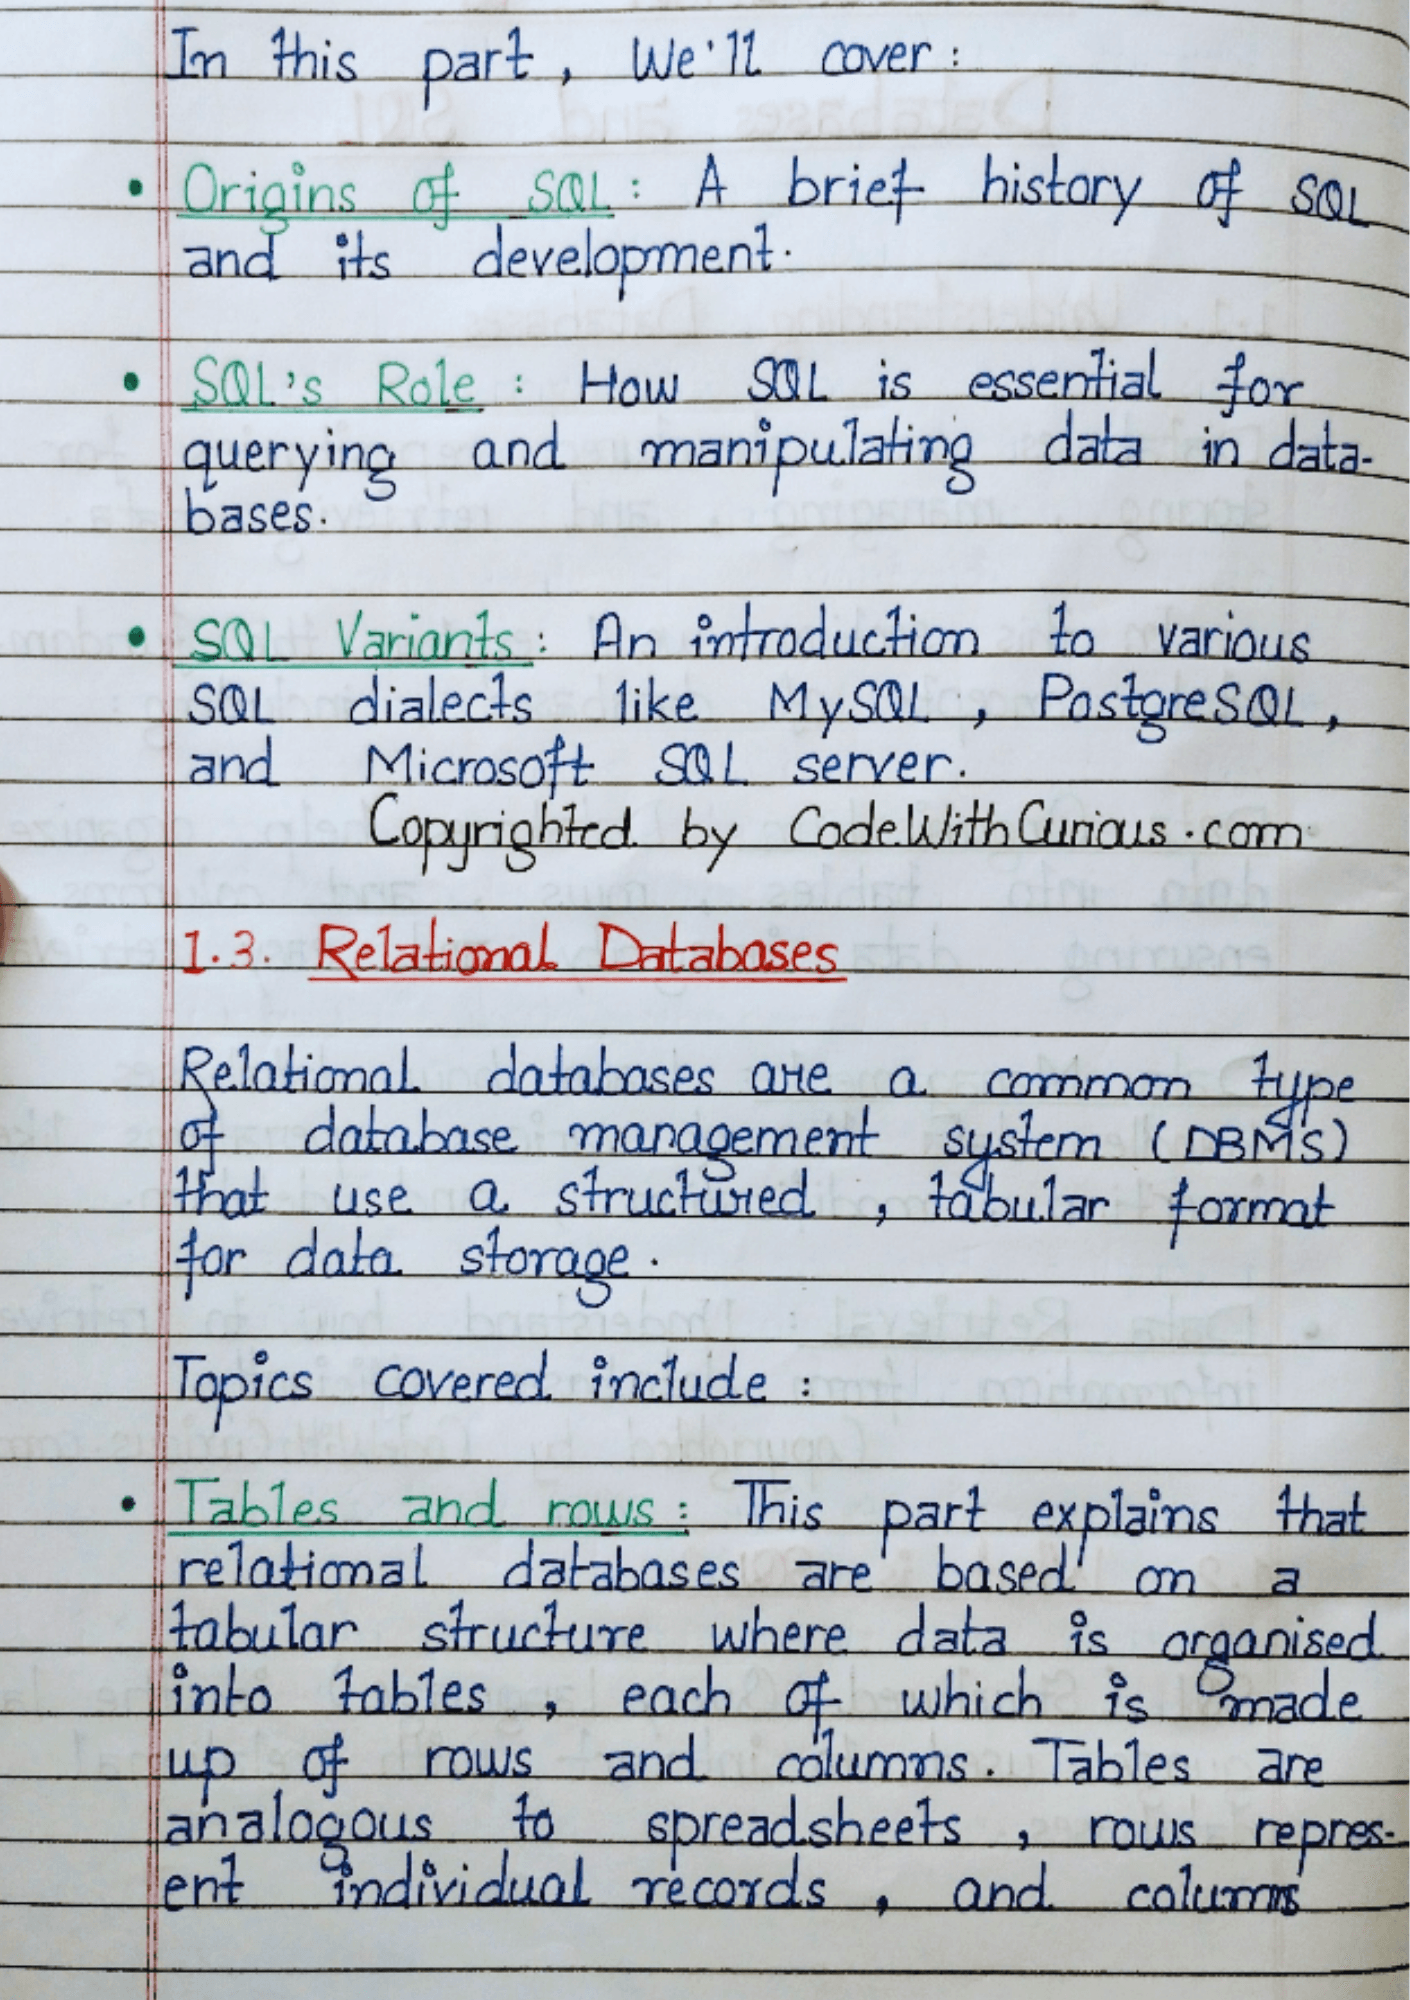 In this part, We'll cover:
• Origins of SQL: A brief history of SQL
and its development.
• SQL's Role: How SQL is essential for
querying and manipulating data in data-
bases.
• SQL Variants: An introduction to various
SQL dialects like MySQL, PostgreSQL,
and Microsoft SQL server.
Copyrighted by CodeWithCurious.com
1.3. Relational Databases
Relational databases are a common type
of database management system (DBMS)
that use a structured, tabular format
for data storage.
Topics covered include:
• Tables and rows: This part explains that
relational databases are based on a
tabular structure where data is organised
into tables, each of which is made
up of rows and columns. Tables are
analogous to spreadsheets, rows repres-
ent individual records, and columns